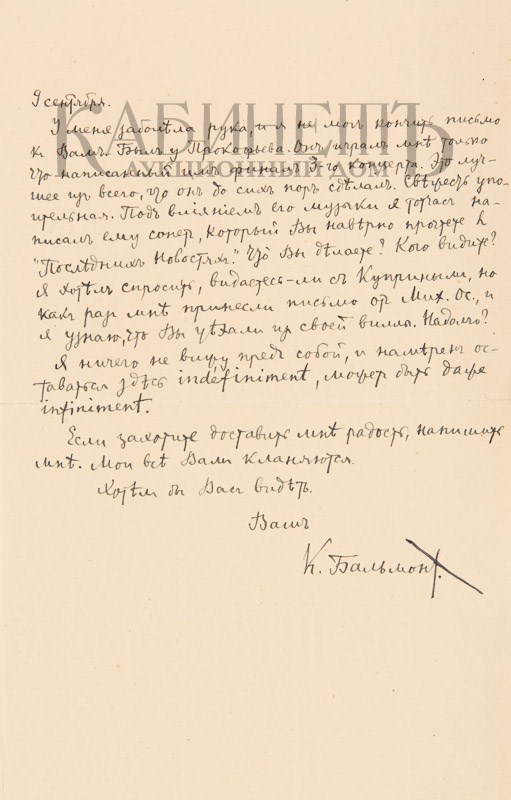 9 сентября.
КАБИНЕТЪ
АУКЦИОННЫЙ ДОМ
У меня заболѣла рука, и я не могъ кончить письмо
къ Вамъ. Былъ у Прокофьева. Онъ игралъ мнѣ только
что написанный имъ финалъ 3-го концерта. Это луч-
шее изъ всего, что онъ до сихъ поръ сдѣлалъ. Свѣжесть упо-
ительная. Подъ вліяніемъ его музыки я тотчасъ на-
писалъ ему сонетъ, который Вы навѣрно прочтете въ
"Послѣднихъ Новостяхъ." Что Вы дѣлаете? Кого видите?
Я хотѣлъ спросить, видаетесь-ли съ Куприными, но
какъ разъ мнѣ принесли письмо отъ Мих. Ос., и
я узнаю, что Вы уѣхали изъ своей виллы. Надолго?
Я ничего не вижу предъ собой, и намѣренъ ос-
таваться здѣсь indéfiniment, можетъ быть даже
infiniment.
Если захотите доставить мнѣ радость, напишите
мнѣ. Мои всѣ Вамъ кланяются.
Хотѣлъ бы Васъ видѣть.
Вашъ
К. Бальмонт.